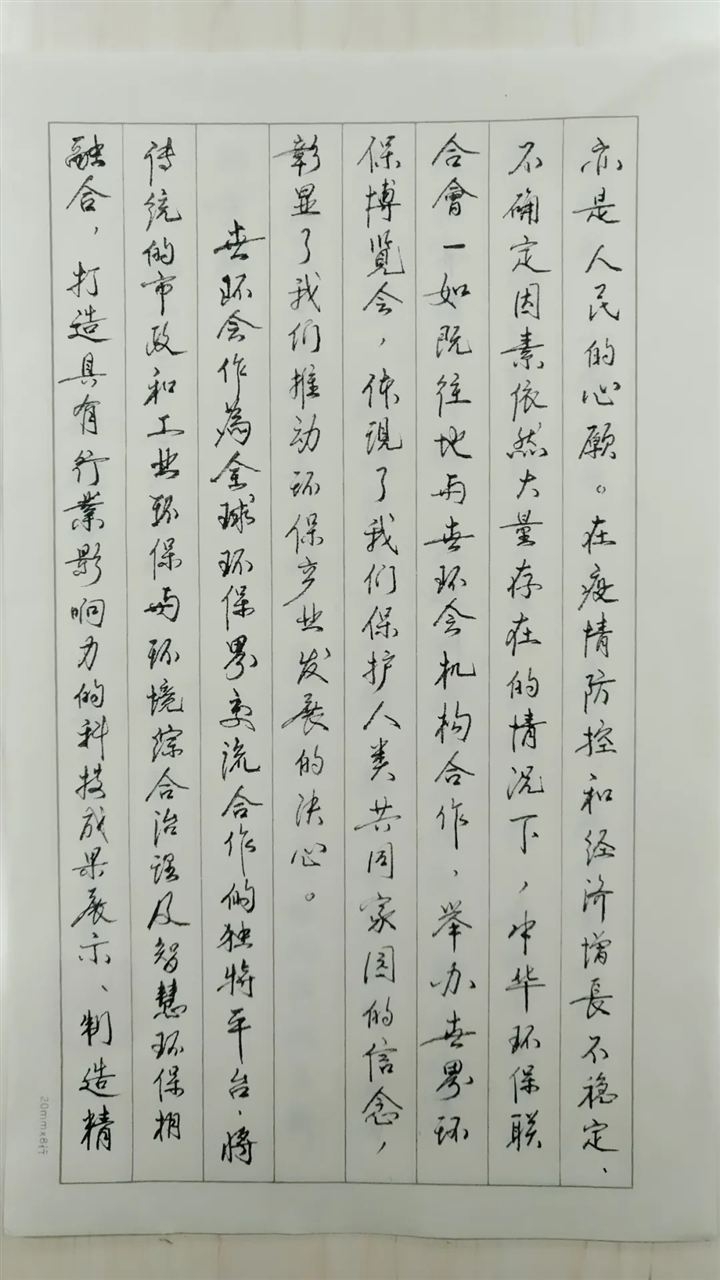 亦是人民的心愿。在疫情防控和经济增長不稳定、
不确定因素依然大量存在的情况下，中华环保联
合會一如既往地与世环会机构合作，举办世界环
保博览会，体现了我们保护人类共同家园的信念，
彰显了我们推动环保产业发展的决心。
世环会作為全球环保界交流合作的独特平台，将
传统的市政和工业环保与环境综合治理及智慧环保相
融合，打造具有行業影响力的科技成果展示、制造精
20mmx8行